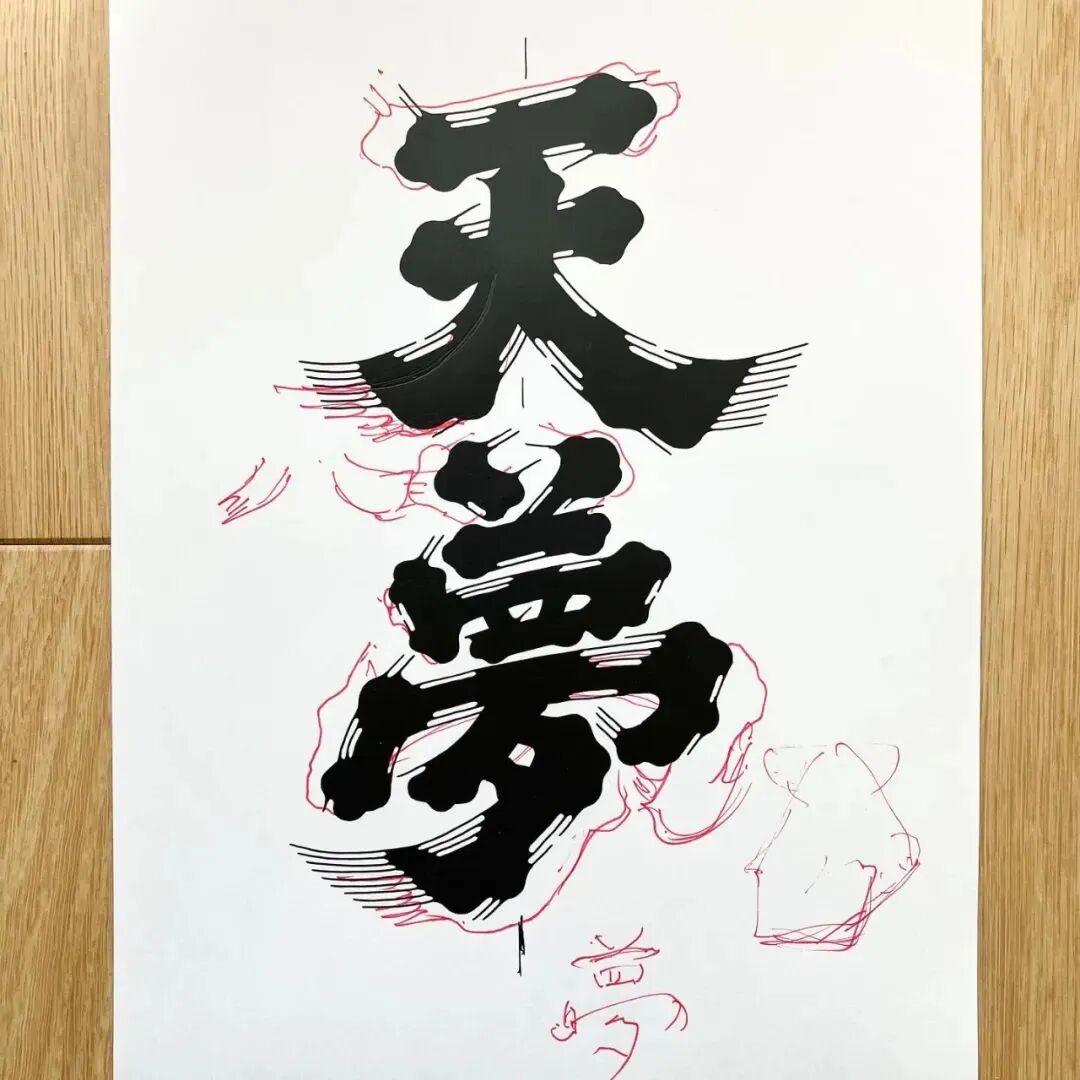 天夢
夢